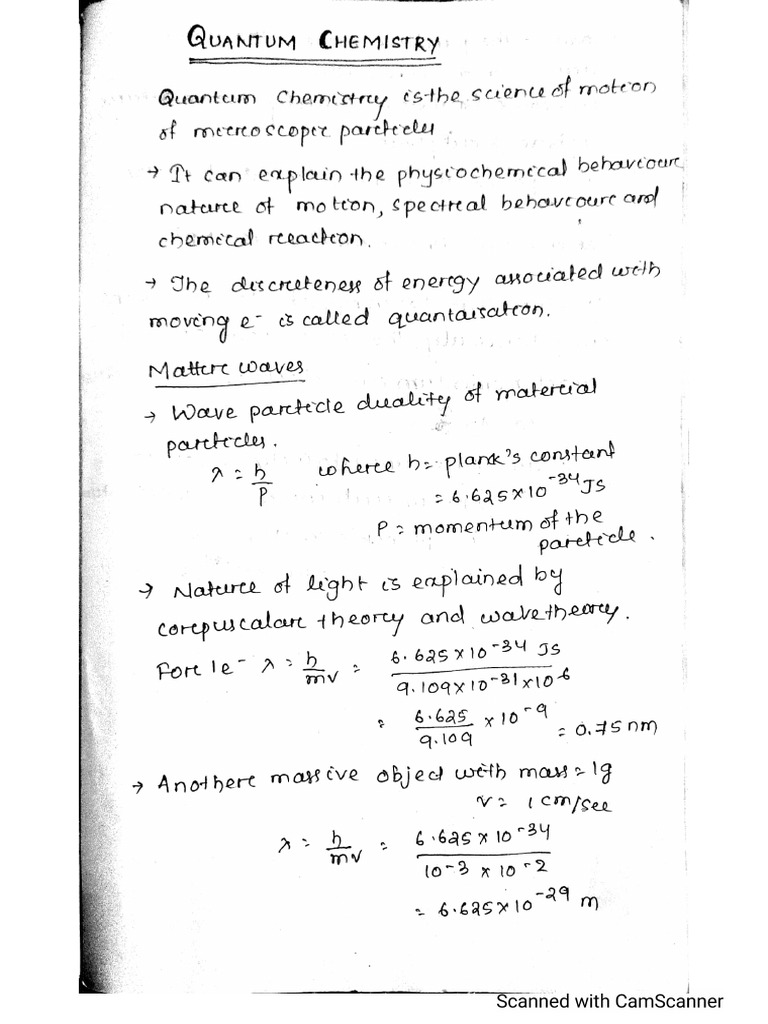 QUANTUM CHEMISTRY
Quantum Chemistry is the science of motion
of microscopic particles.
→ It can explain the physiochemical behaviour,
nature of motion, spectral behaviour and
chemical reaction.
→ The discreteness of energy associated with
moving e⁻ is called quantaisation.
Matter waves
→ Wave particle duality of material
particles.
λ = h/P where h = plank's constant
= 6.625 × 10⁻³⁴ JS
P = momentum of the
particle.
→ Nature of light is explained by
corpuscular theory and wave theory.
For 1e⁻ λ = h/mv = 6.625 × 10⁻³⁴ JS / 9.109 × 10⁻³¹ × 10⁻⁶
= 6.625/9.109 × 10⁻⁹ = 0.75 nm
→ Another massive object with mass = 1g
v = 1 cm/sec
λ = h/mv = 6.625 × 10⁻³⁴ / 10⁻³ × 10⁻²
= 6.625 × 10⁻²⁹ m
Scanned with CamScanner